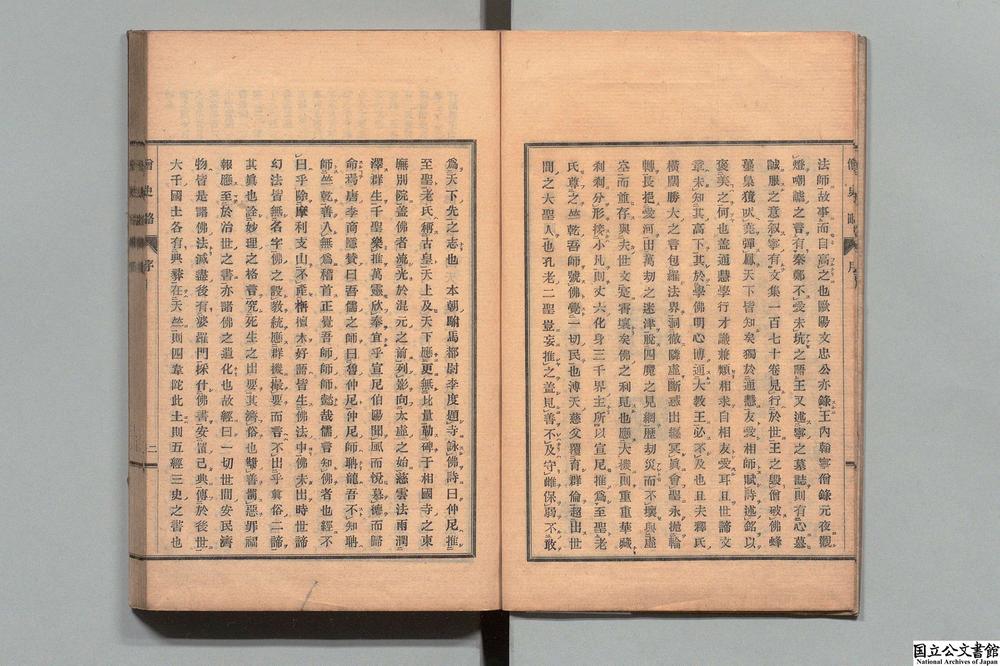 法師故事而自高之也歐陽文忠公亦錄王內翰寧僧錄元夜觀
燈嘲謔之言有秦鄭不愛未坑之語王又述寧之墓誌則有心墓
誠服之意叙寧有文集一百七十卷見行於世王之毀僧破佛蜂
蠆梟獲吠堯彈鳳天下皆知矣獨於通慧友愛相師賦詩述銘以
褒美之何也蓋通慧學行才識兼類相求自相友愛耳且世諦文
章未知其高下其於學佛明心博通大教王必不及也且夫釋氏
橫閣勝大之言包羅法界洞徹隣虛斷惑出纏冥眞會聖永拋輪
轉長挹愛河出萬劫之迷津脫四魔之見網歷劫災而不壞與虛
空而重存與夫世文寔霄壤矣佛之利見也應大機則重重華藏
刹刹分形接小凡則丈六化身三千界主所以宣尼推爲至聖老
氏尊之竺乾吾師號佛覺一切民也溥天慈父覆育群倫超出世
間之大聖人也孔老二聖豈妄推之蓋見善不及守雌保弱不敢
爲天下先之志也天本朝駙馬都尉李度題寺詠佛詩曰仲尼推
至聖老氏稱古皇天上及天下應更無比量勒碑于相國寺之東
廡別院蓋佛者流光於混元之前列影向太虛之始慈雲法雨潤
澤群生千聖樂推萬靈欣奉宜乎宣尼伯陽聞風而悅慕德而歸
命焉唐李商隱贊曰吾儒之師曰魯仲尼仲尼師聃龍吾不知聃
師竺乾善入無爲稽首正覺吾師師師懿哉儒言知佛者也經不
曰乎除摩利支山不產栴檀木好語皆生佛法中佛未出時世諦
幻法皆無名字佛之設教統應群機撮要而言不出乎眞俗二諦
其眞也詮妙理之格言究死生之出要其濟俗也獎善罰惡罪福
報應至於治世之書亦諸佛之遺化也故經曰一切世間安民濟
物皆是諸佛法滅盡後有婆羅門採什佛書安置己典傳於後世
大千國土各有典彜在天竺則四韋陀此土則五經三史之書也
僧史略序
二
国立公文書館
National Archives of Japan